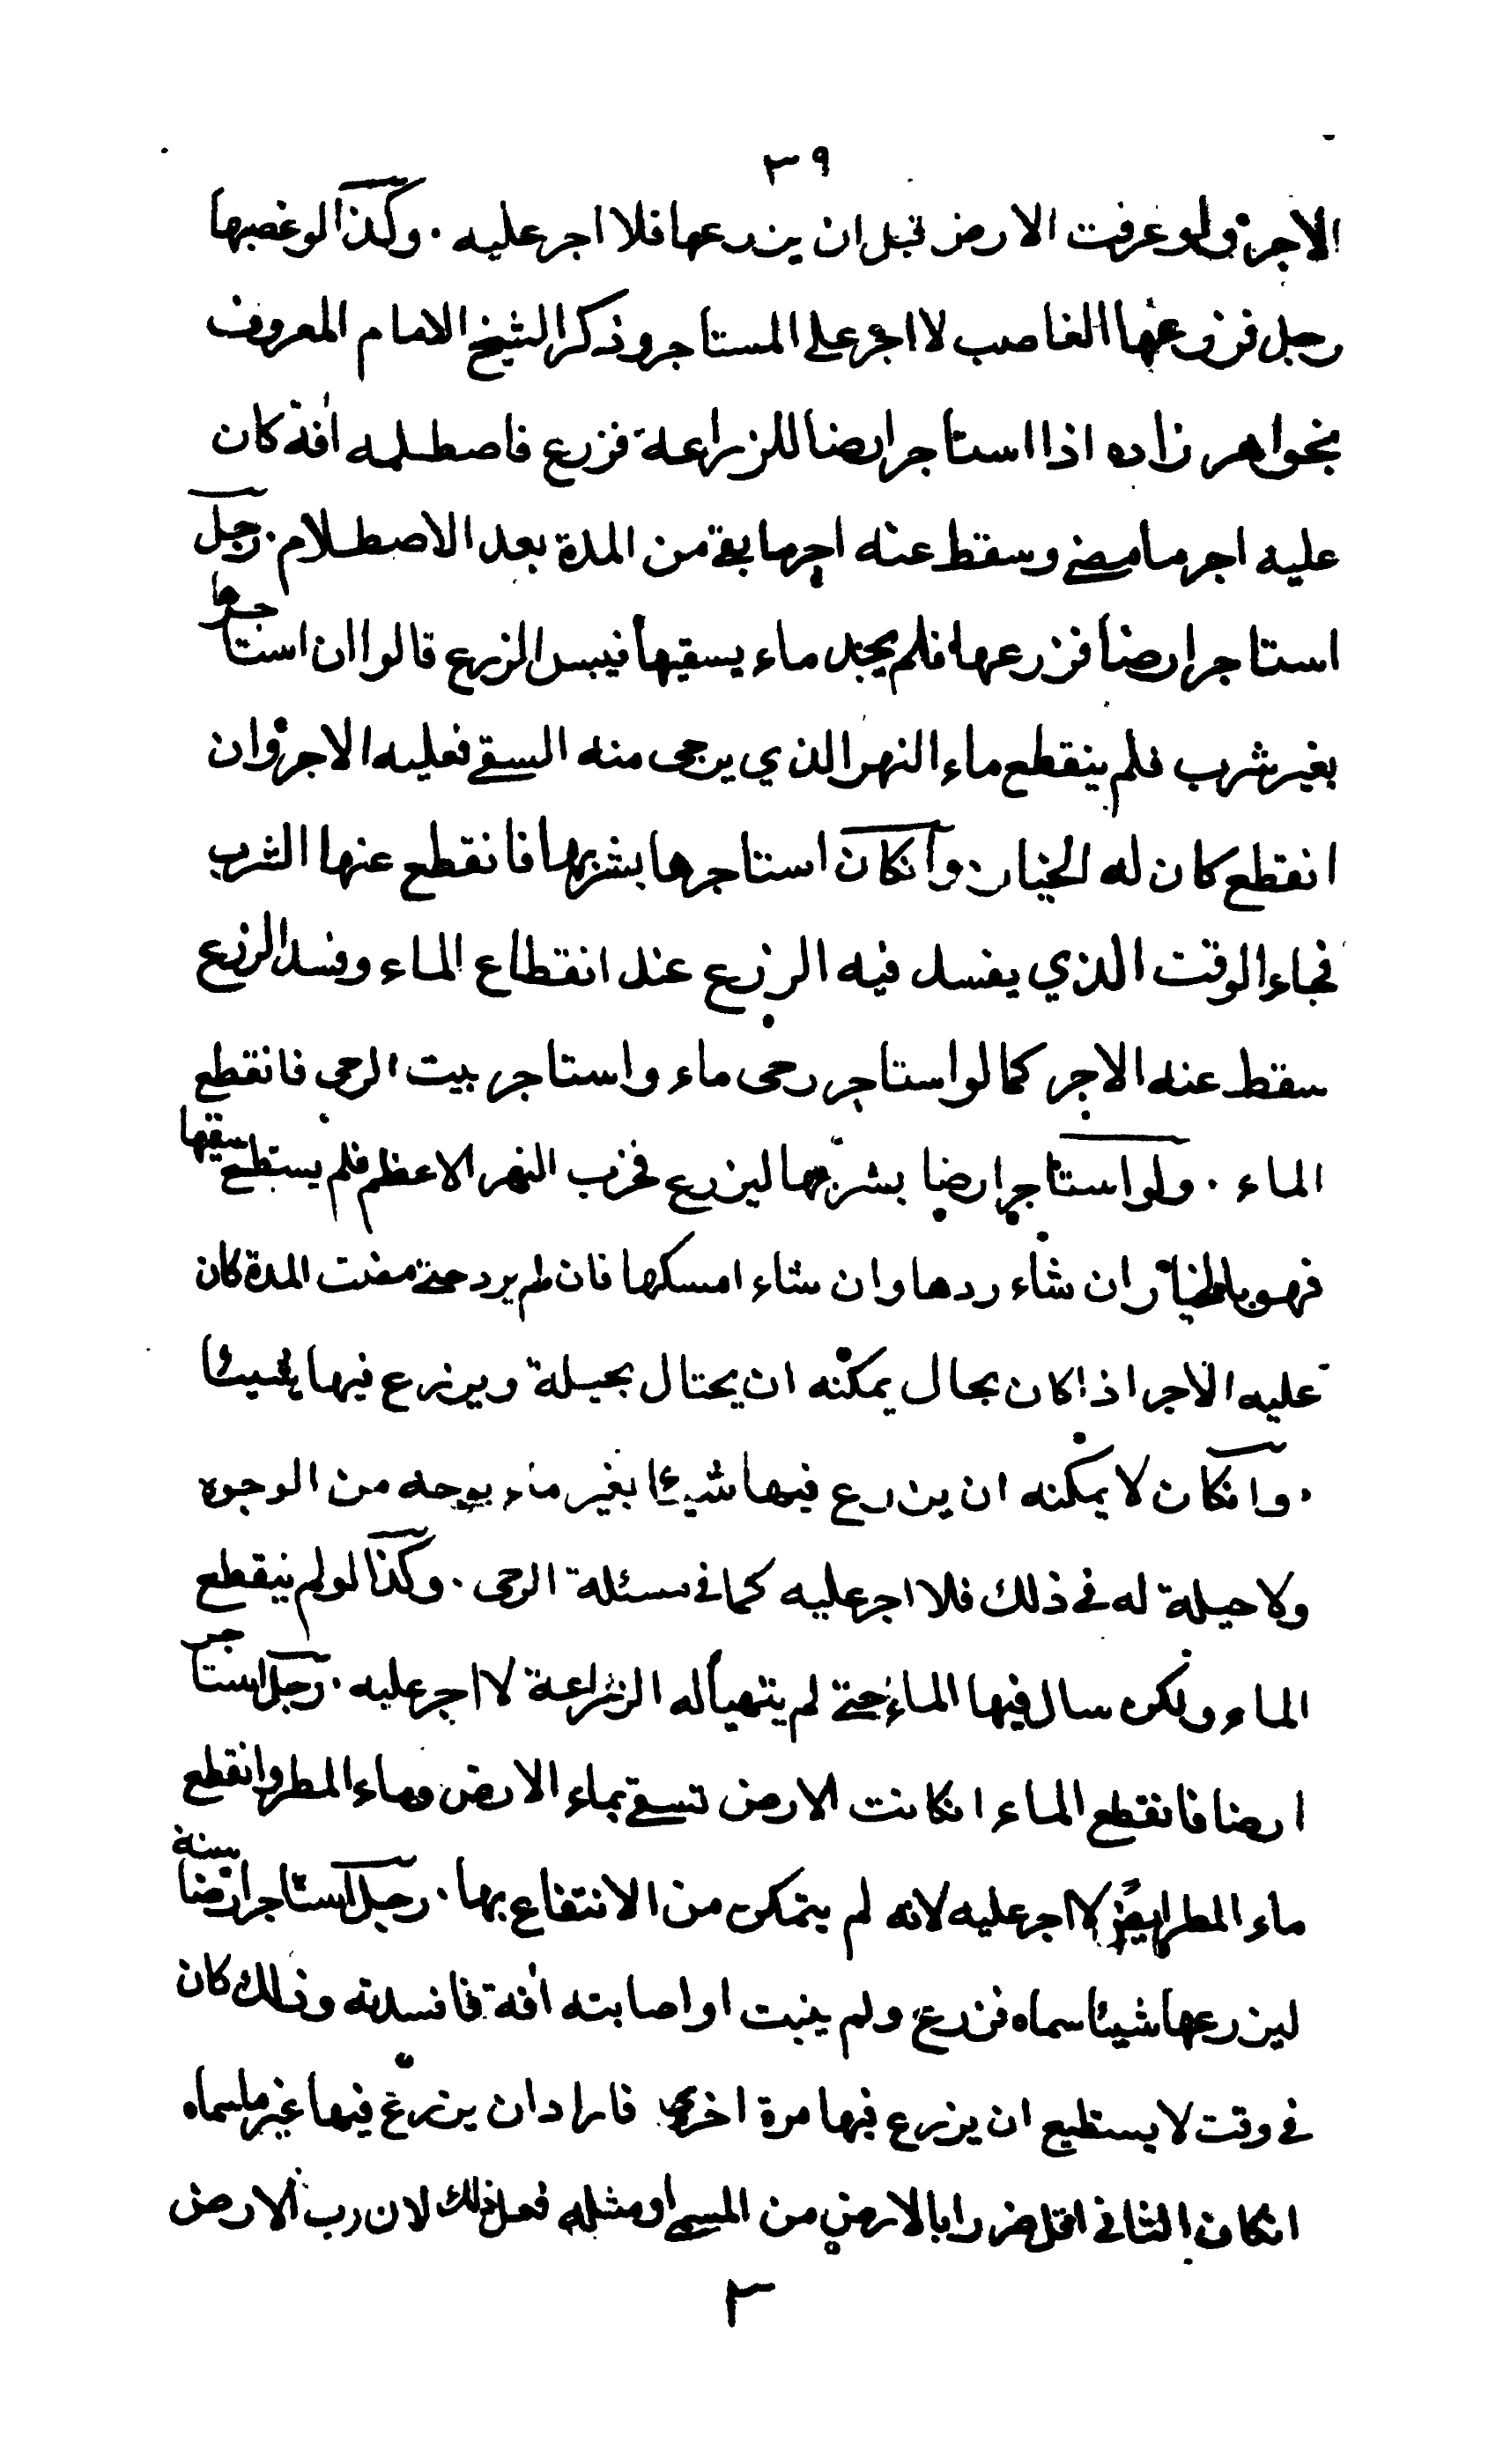 ٣٩
الاجر ولو غرقت الارض قبل ان يزرعها فلا اجر عليه . وكذا لو غصبها
رجل فزرعها الغاصب لا اجر على المستاجر وذكر الشيخ الامام المعروف
بخواهر زاده اذا استاجر ارضا للزراعة فزرع فاصطلمه افة كان
عليه اجر ما مضى وسقط عنه اجر ما بقى من المدة بعد الاصطلام . رجل
استاجر ارضا فزرعها فلم يجد ماء يسقيها فيبس الزرع قالوا ان استاجرها
بغير شرب فلم ينقطع ماء النهر الذي يرجى منه السقي فعليه الاجر وان
انقطع كان له الخيار وانكان استاجرها بشربها فانقطع عنها الشرب
فجاء الوقت الذي يفسد فيه الزرع عند انقطاع الماء وفسد الزرع
سقط عنه الاجر كما لو استاجر رحى ماء واستاجر بيت الرحى فانقطع
الماء . ولو استاجر ارضا بشربها ليزرع فخرب النهر الاعظم فلم يستطع سقيها
فهو بالخيار ان شاء ردها وان شاء امسكها فان لم يرد حتى مضت المدة كان
عليه الاجر اذا كان بحال يمكنه ان يحتال بحيلة ويزرع فيها شيئا
. وانكان لا يمكنه ان يزرع فيها شيئا بغير ماء بوجه من الوجوه
ولا حيلة له في ذلك فلا اجر عليه كما في مسئلة الرحى . وكذا لو لم ينقطع
الماء ولكن سال فيها الماء حتى لم يتهيأ له الزراعة لا اجر عليه . رجل استاجر
ارضا فانقطع الماء انكانت الارض تسقى بماء الارض وماء المطر وانقطع
ماء المطر ايضا لا اجر عليه لانه لم يتمكن من الانتفاع بها . رجل استاجر ارضا سنة
ليزرعها شيئا سماه فزرع ولم ينبت او اصابته افة فافسدته وذلك كان
في وقت لا يستطيع ان يزرع فيها مرة اخرى فاراد ان يزرع فيها غير ما سماه
انكان الثاني اقل ضررا بالارض من المسمى او مثله فعل ذلك لان رب الارض
٣